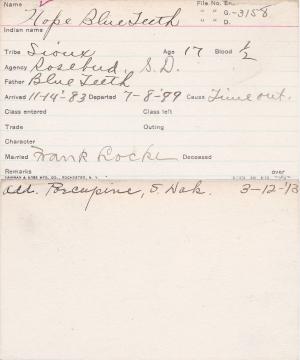 Name Hope Blue Teeth File No. En.
" " G. -3158
Indian name " " D.
Tribe Sioux Age 17 Blood 1/2
Agency Rosebud, S.D.
Father Blue Teeth
Arrived 11-14-'83 Departed 7-8-'89 Cause Time out.
Class entered Class left
Trade Outing
Character
Married Frank Locke Deceased
Remarks over
Add. Porcupine, S. Dak. 3-12-'13